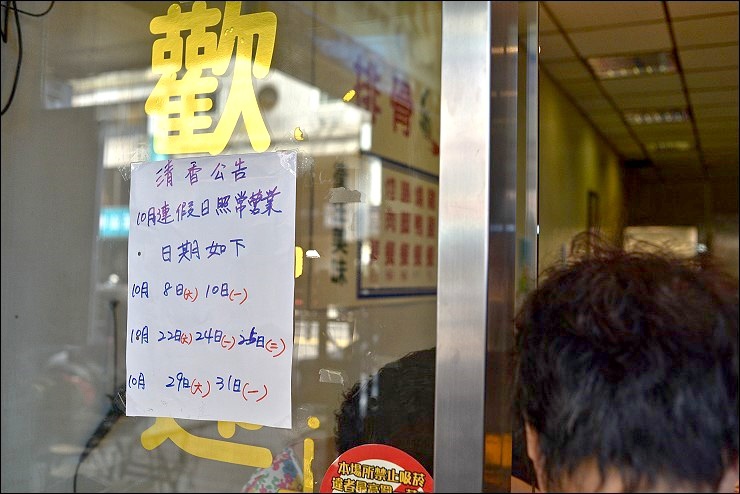 歡
清香公告
10月連假日照常營業
· 日期如下
10月 8日(六) 10日(一)
10月 22日(六) 24日(一) 25日(二)
10月 29日(六) 31日(一)
排骨
本場所禁止吸菸
違者最高罰